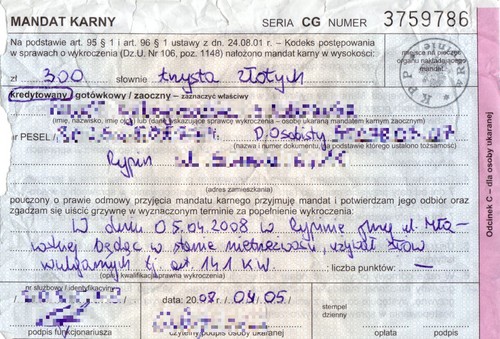 MANDAT KARNY SERIA CG NUMER 3759786
Na podstawie art. 95 § 1 i art. 96 § 1 ustawy z dn. 24.08.01 r. – Kodeks postępowania
w sprawach o wykroczenia (Dz.U. Nr 106, poz. 1148) nałożono mandat karny w wysokości:
miejsce na pieczęć
organu nakładającego
mandat
zł 300 słownie trzysta złotych
kredytowany gotówkowy / zaoczny – zaznaczyć właściwy
(imię, nazwisko, imię ojca lub dane sprawcy wykroczenia – osoby ukaranej mandatem karnym zaocznym)
nr PESEL D. Osobisty
(nazwa i numer dokumentu, na podstawie którego ustalono tożsamość)
Rypin ul.
(adres zamieszkania)
pouczony o prawie odmowy przyjęcia mandatu karnego przyjmuję mandat i potwierdzam jego odbiór oraz
zgadzam się uiścić grzywnę w wyznaczonym terminie za popełnienie wykroczenia:
W dniu 05.04.2008 w Rypinie przy ul. Mła-
będąc w stanie nietrzeźwości, użył słów
wulgarnych tj. art. 141 KW
(opis, kwalifikacja prawna wykroczenia)
liczba punktów: —
nr służbowy / identyfikacyjny
data: 2008 r. / 04 / 05 /
stempel
dzienny
podpis funkcjonariusza
czytelny podpis osoby ukaranej
opłata
podpis
Odcinek C – dla osoby ukaranej